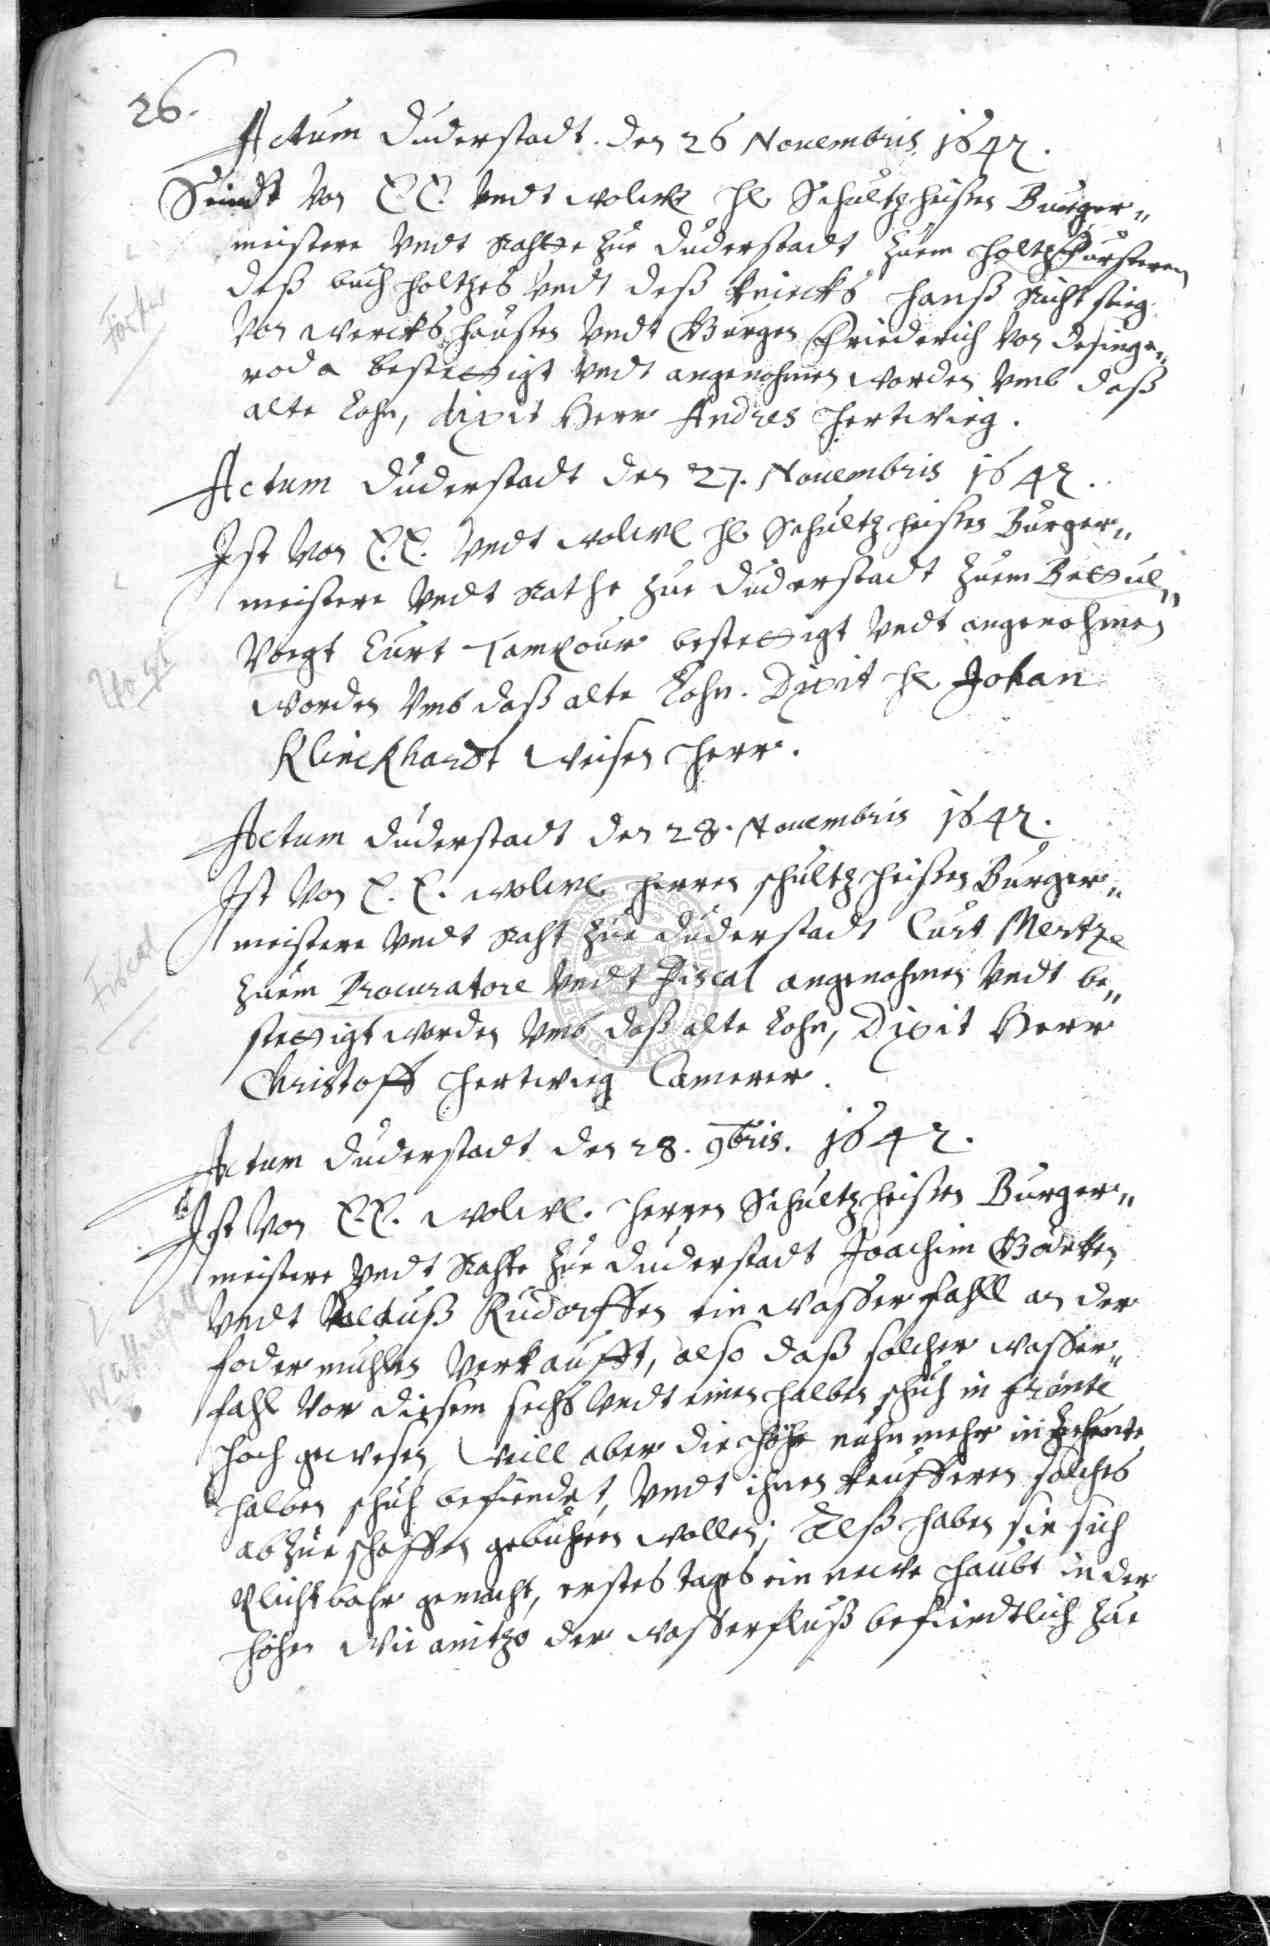 26.
Actum Duderstadt den 26 Novembris 1642.
Seindt von E. E. undt wolw. H. Schultzheißen Burger-
meistere undt Rahtte zue Duderstadt zuem Holtzfursteren
deß buchholtzes undt deß kniecks Hanß
von Werckshaußen undt Friederich von Desinge-
roda bestettigt undt angenohmen worden umb daß
alte Lohn, dixit Herr Andres Hertwieg.
Förster
Actum Duderstadt den 27. Novembris 1642.
Ist von E. E. undt wolw. H. Schultzheißen Burger-
meistere undt Rathe zue Duderstadt zuem Bettul-
Voigt Curt bestettigt undt angenohmen
worden umb daß alte Lohn. Dixit H. Johan
Klinckhardt Weisen Herr.
Vogt
Actum Duderstadt den 28. Novembris 1642.
Ist von E. E. wolw. Herren Schultzheißen Burger-
meistere undt Raht zue Duderstadt Curt Mertze
zuem Procuratore undt Fiscal angenohmen undt be-
stettigt worden umb daß alte Lohn, Dixit Herr
Christoff Hertwieg Camerer.
Fiscal
Actum Duderstadt den 28. 9bris. 1642.
Ist von E. E. wolw. Herren Schultzheißen Burger-
meistere undt Rahte zue Duderstadt Joachim
undt Rudorffen ein wasserfahll an der
fodermuhlen verkaufft, also daß solcher wasser-
fahl vor diesem sechs undt einen halben schuh in
hoch gewesen, weill aber die höhe nuhn mehr in
halben schuh befindet, undt ihnen keufferen solches
abzueschaffen gebühren wollen; Alß haben sie sich
pflichtbahr gemacht, erstes tages ein newe haubt in der
höhe wie anitzo der wasserfluß befiendtlich zue
Wasserfall